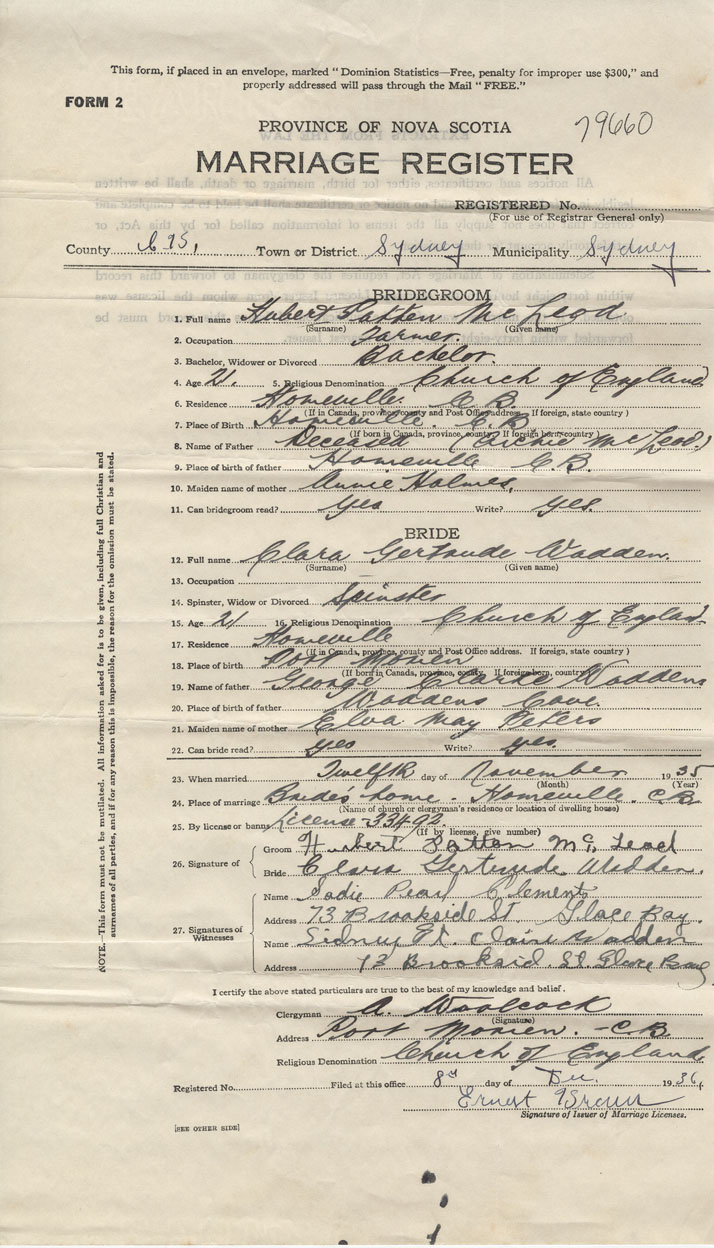 This form, if placed in an envelope, marked "Dominion Statistics—Free, penalty for improper use $300," and
properly addressed will pass through the Mail "FREE."
FORM 2
79660
PROVINCE OF NOVA SCOTIA
MARRIAGE REGISTER
REGISTERED No.
(For use of Registrar General only)
County C.B. Town or District Sydney Municipality Sydney
BRIDEGROOM
1. Full name Hubert Patten McLeod
(Surname) (Given name)
2. Occupation Farmer.
3. Bachelor, Widower or Divorced Bachelor.
4. Age 21. 5. Religious Denomination Church of England
6. Residence Homeville. C.B.
(If in Canada, province, county and Post Office address. If foreign, state country)
7. Place of Birth Homeville. C.B.
(If born in Canada, province, county. If foreign born, country)
8. Name of Father Deceased (Archie McLeod)
9. Place of birth of father Homeville C.B.
10. Maiden name of mother Annie Holmes.
11. Can bridegroom read? yes Write? yes.
BRIDE
12. Full name Clara Gertrude Wadden.
(Surname) (Given name)
13. Occupation
14. Spinster, Widow or Divorced Spinster
15. Age 21 16. Religious Denomination Church of England
17. Residence Homeville
(If in Canada, province, county and Post Office address. If foreign, state country)
18. Place of birth Port Morien
(If born in Canada, province, county. If foreign born, country)
19. Name of father George Clarke Waddens
20. Place of birth of father Waddens Cove.
21. Maiden name of mother Elva May Peters
22. Can bride read? yes Write? yes.
23. When married Twelfth day of November 1935
(Month) (Year)
24. Place of marriage Bride's home. Homeville. C.B.
(Name of church or clergyman's residence or location of dwelling house)
25. By license or banns License 33492.
(If by license, give number)
26. Signature of
Groom Hubert Patton McLeod
Bride Clara Gertrude Wadden.
27. Signatures of Witnesses
Name Sadie Pearl Clements
Address 73 Brookside St. Glace Bay.
Name Sidney St. Claire Wadden
Address 73 Brooksid. St Glace Bay
I certify the above stated particulars are true to the best of my knowledge and belief.
Clergyman A. Woolcock
(Signature)
Address Port Morien. - C.B.
Religious Denomination Church of England
Registered No. Filed at this office 8th day of Dec. 1936
Ernest Brown
Signature of Issuer of Marriage Licenses.
[SEE OTHER SIDE]
NOTE.—This form must not be mutilated. All information asked for is to be given, including full Christian and
surnames of all parties, and if for any reason this is impossible, the reason for the omission must be stated.